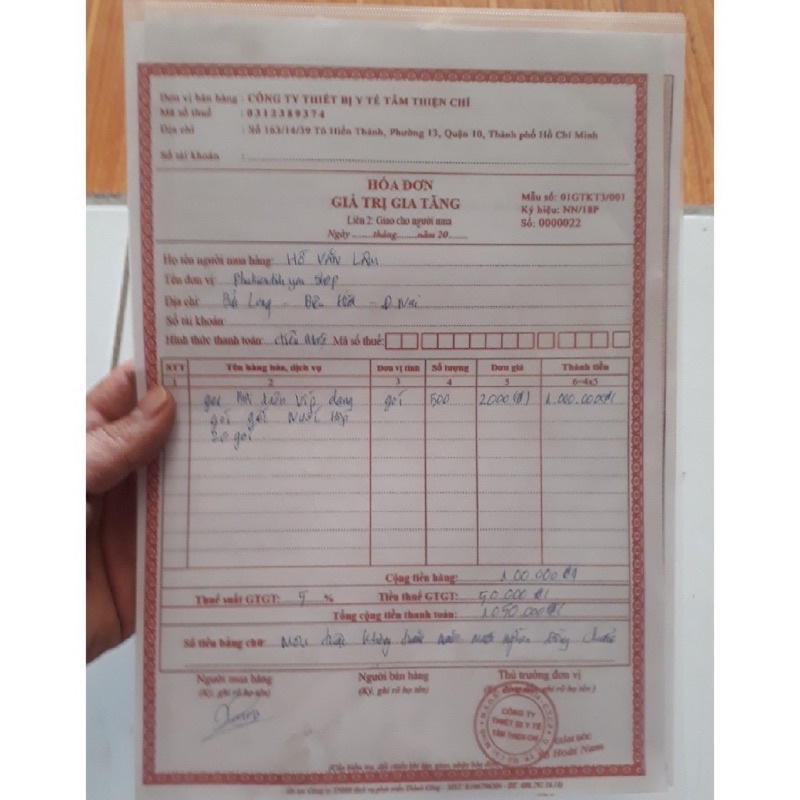 Đơn vị bán hàng : CÔNG TY THIẾT BỊ Y TẾ TÂM THIỆN CHÍ
Mã số thuế : 0312389374
Địa chỉ : Số 163/14/39 Tô Hiến Thành, Phường 13, Quận 10, Thành phố Hồ Chí Minh
Số tài khoản :
HÓA ĐƠN
GIÁ TRỊ GIA TĂNG
Liên 2: Giao cho người mua
Ngày ...... tháng ...... năm 20 ......
Mẫu số: 01GTKT3/001
Ký hiệu: NN/18P
Số: 0000022
Họ tên người mua hàng: HỒ VĂN LÂM
Tên đơn vị: shop
Địa chỉ: Long - Biên Hòa - Đ Nai
Số tài khoản:
Hình thức thanh toán: Mã số thuế:
STT Tên hàng hóa, dịch vụ Đơn vị tính Số lượng Đơn giá Thành tiền
1 2 3 4 5 6=4x5
gel bôi trơn Vip dạng gói 500 2000(đ) 1.000.000đ
gói
20 gói
Cộng tiền hàng: 1.00.000đ
Thuế suất GTGT: 5 % Tiền thuế GTGT: 50.000đ
Tổng cộng tiền thanh toán: 1050.000đ
Số tiền bằng chữ: Một triệu không trăm năm mươi nghìn đồng chẵn
Người mua hàng Người bán hàng Thủ trưởng đơn vị
(Ký, ghi rõ họ tên) (Ký, ghi rõ họ tên) (Ký, đóng dấu, ghi rõ họ tên)
CÔNG TY
THIẾT BỊ Y TẾ
TÂM THIỆN CHÍ
GIÁM ĐỐC
Hoài Nam